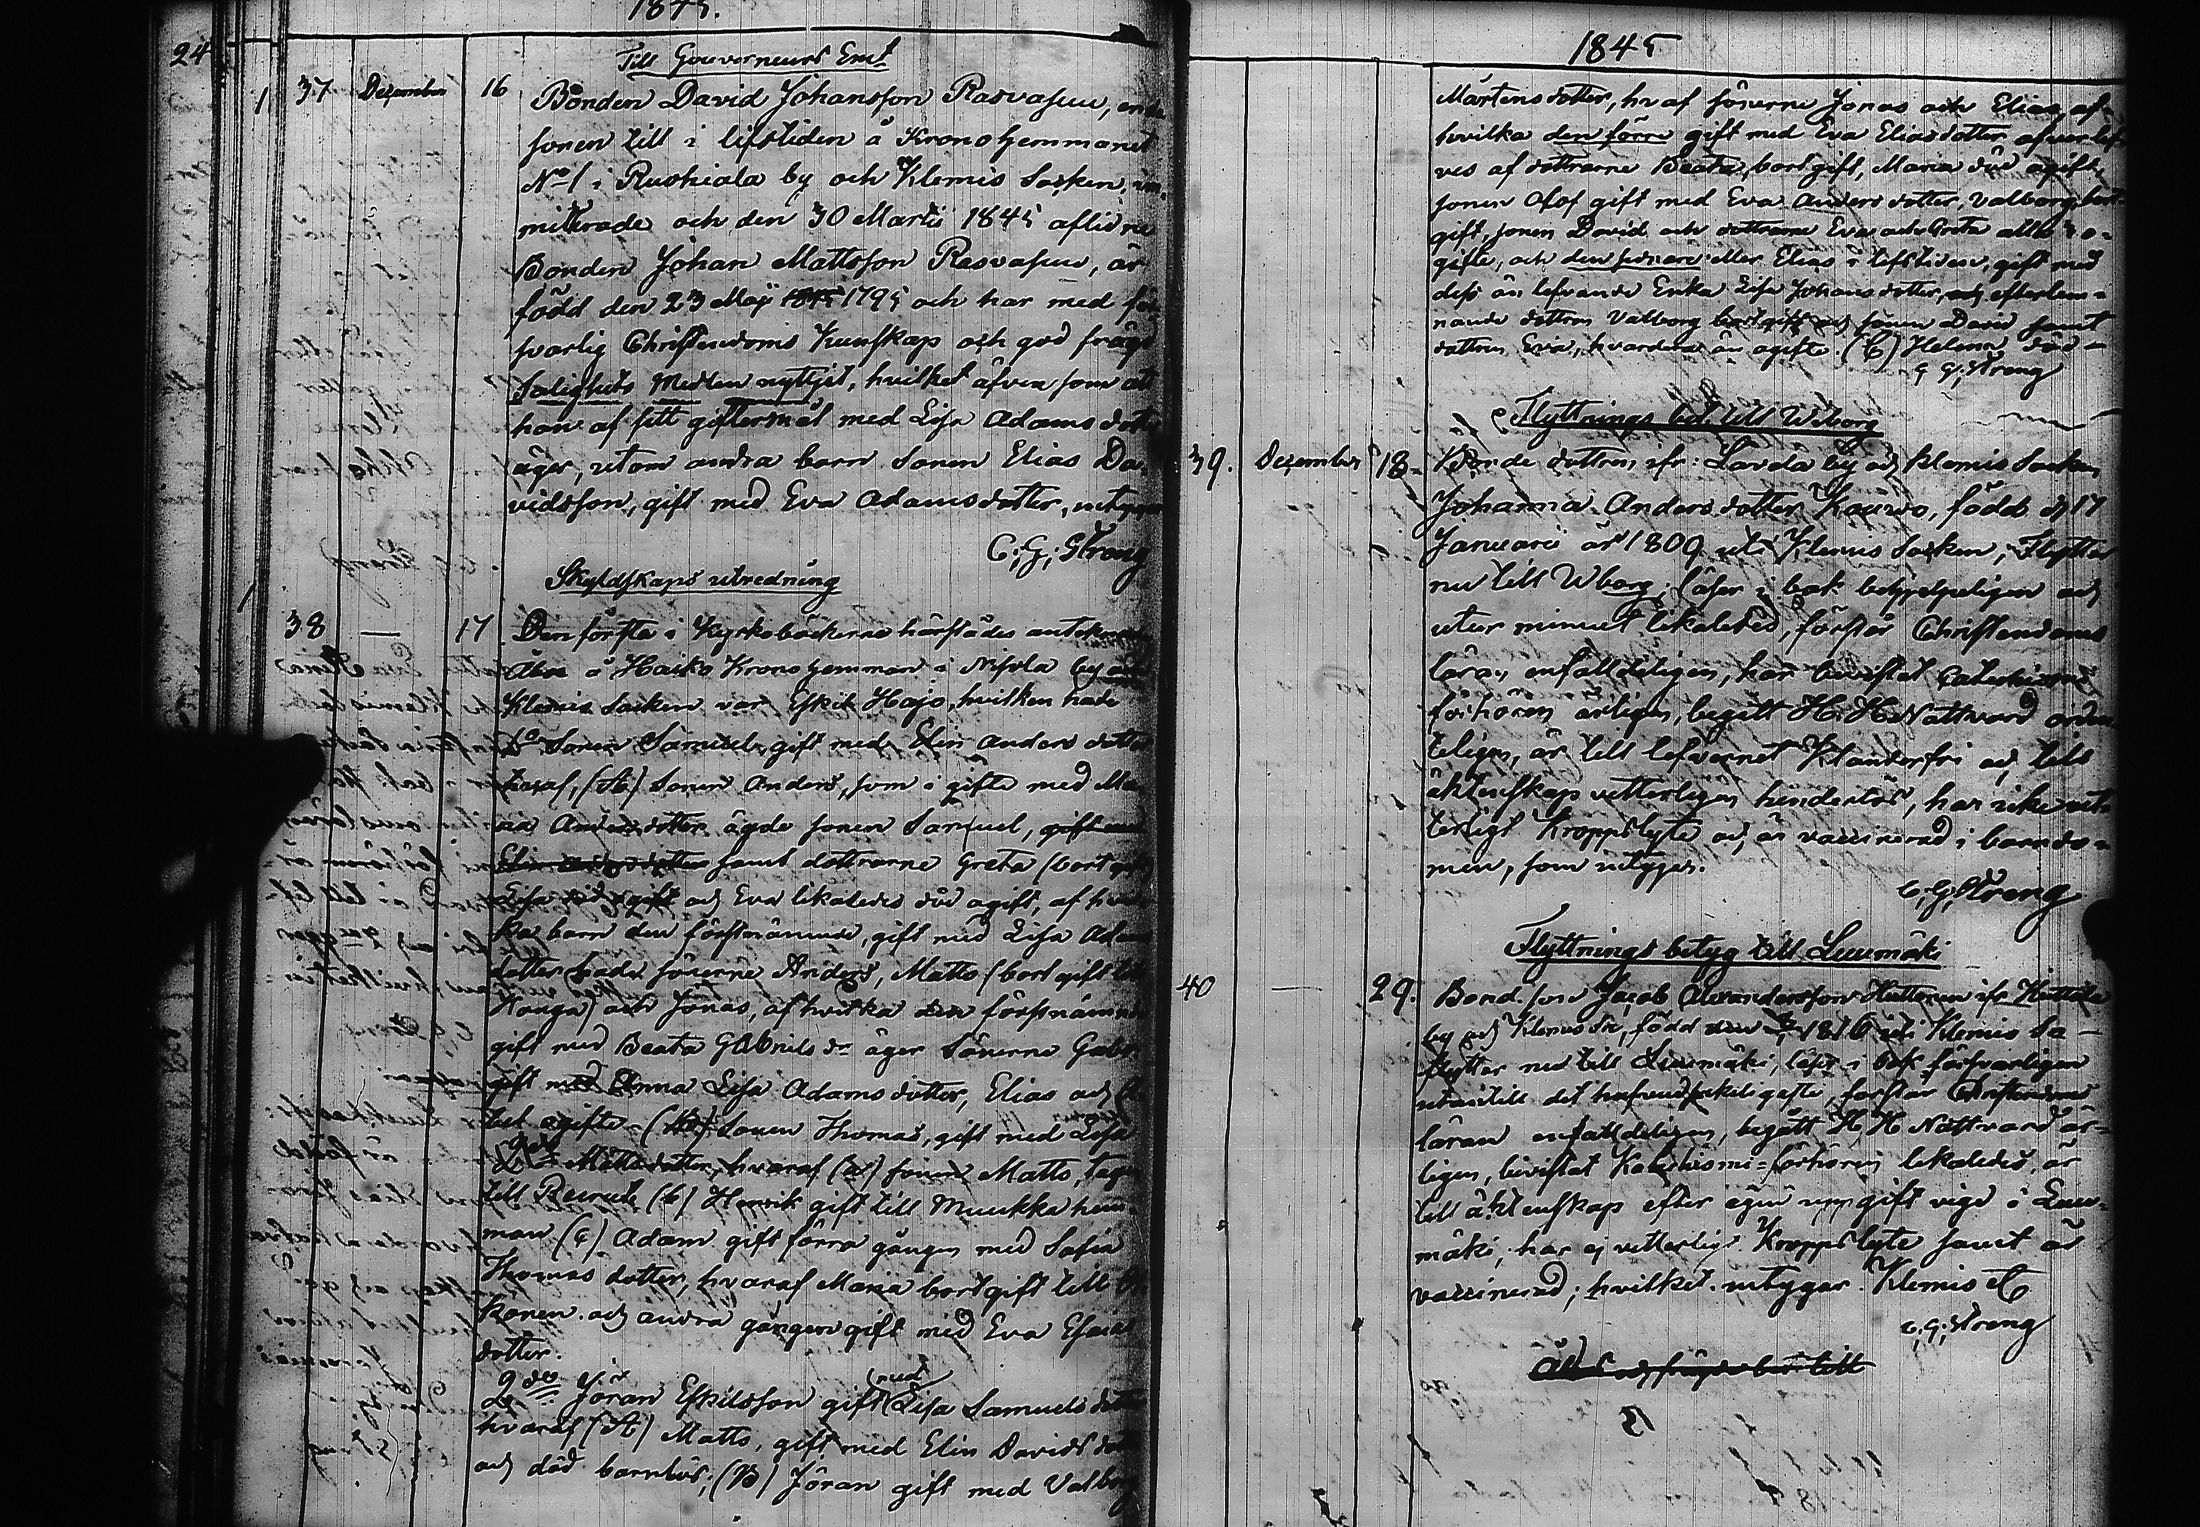 1845.
24
Till Gouverneurs Emt
1 37 Dezember 16 Bonden David Johansson Rasvasuu, enda
sonen till i lifstiden å Kronohemmanet
No 1 i Ruokiala by och Klemis Socken, im-
mitterade och den 30 Martii 1845 aflidne
Bonden Johan Mattsson Rasvasuu, är
född den 23 Maji 1795 och har med för
svarlig Christendoms Kunskap och god frägd
Salighets Medlen nyttjat, hvilket äfven som att
han af sitt giftermål med Lisa Adams dotter
äger, utom andra barn Sonen Elias Da-
vidsson, gift med Eva Adamsdotter, utgyar
C; G; Streng
Skyldskaps utredning
1
38 — 17 Den första i Kyrkoböckerna härstädes antekna
Åbon å Haiko Krono hemman i Nisola by och
Klemis Socken var Eskil Hajo, hvilken hade
1o Sonen Samuel, gift med Elin Anders dotter
hvaraf, (A) Sonen Anders, som i gifte med Ma
ria Anders dotter ägde sonen Samuel, gift med
Elin Anders dotter samt dottrarne Greta (bort gift
Lisa död ogift och Eva likaledes död ogift, af hvil
ka barn den förstnämnde, gift med Lisa Adams
dotter hade sönerne Anders, Matts (bort gift till
Konga) och Jonas, af hvilka den förstnämnde
gift med Beata Gabriels dr äger Sönerne Gabr
gift med Anna Lisa Adams dotter, Elias och
ogifte - (B) Sonen Thomas, gift med Lisa
Mattsdotter, hvaraf (a) sonen Matts, tagen
till Recrut (b) Henrik gift till Muukka hem-
man (c) Adam gift förra gången med Sofia
Thomas dotter, hvaraf Maria bortgift till
konen och andra gången gift med Eva Esaias
dotter.
2do Jöran Eskilsson gift med Lisa Samuels dotter
hvaraf (A) Matts, gift med Elin Davids dotter
och död barnlös; (B) Jöran gift med Valborg
1845
Mårtens dotter, hvaf sönerne Jonas och Elias, af
hvilka den förre gift med Eva Elias dotter, afverlef
ves af dottrarne Beata, bortgift, Maria död ogift,
sonen Olof gift med Eva Anders dotter, Valborg bort
gift, sonen David och dottrarne Eva och Greta alla o-
gifte, och den senare eller Elias i lifstiden, gift med
dess än lefvande Enka Lisa Johans dotter, och efterlem-
nande dottren Valborg bortgift och sonen David samt
dottren Eva, hvardera än ogifte. (C) Helena död -
C G; Streng
Flyttnings bet. till Wiborg
39. Dezember 18 - Bonde dottren ifr: Lavola by och Klemis Socken
Johanna Anders dotter Kauwo, född d 17
Januarii år 1809 uti Klemis Socken, Flyttar
nu till Wborg; läser i bok behjelpeligen och
utur minnet likaledes, förstår Christendoms
läran enfalldeligen, har bevistat Catechismi
förhören årligen, begått H. H. Nattvard orden
teligen, är till lefvernet Klanderfri och till
äktenskap vetterligen hinderlös, har icke vet-
terligt Kroppslyte och är vaccinerad i barndo-
men, som utgyar.
C; G; Streng
Flyttnings betyg till Luumäki
40 — 29. Bond. son Jacob Alexandersson Huttunen ifr Huttula
by och Klemis Sn, född den 1816 uti Klemis Sn
flyttar nu till Luumäki, läser i bok försvarligen
utantill det hufvudsakeligaste, förstår Christendoms
läran enfalldeligen, begått H. H. Nattvard år-
ligen, bevistat Katechismi-förhören likaledes, är
till äktenskap efter egen uppgift vigd i Luu-
mäki, har ej vetterligt Kroppslyte samt är
vaccinerad; hvilket utgyar. Klemis
C; G; Streng